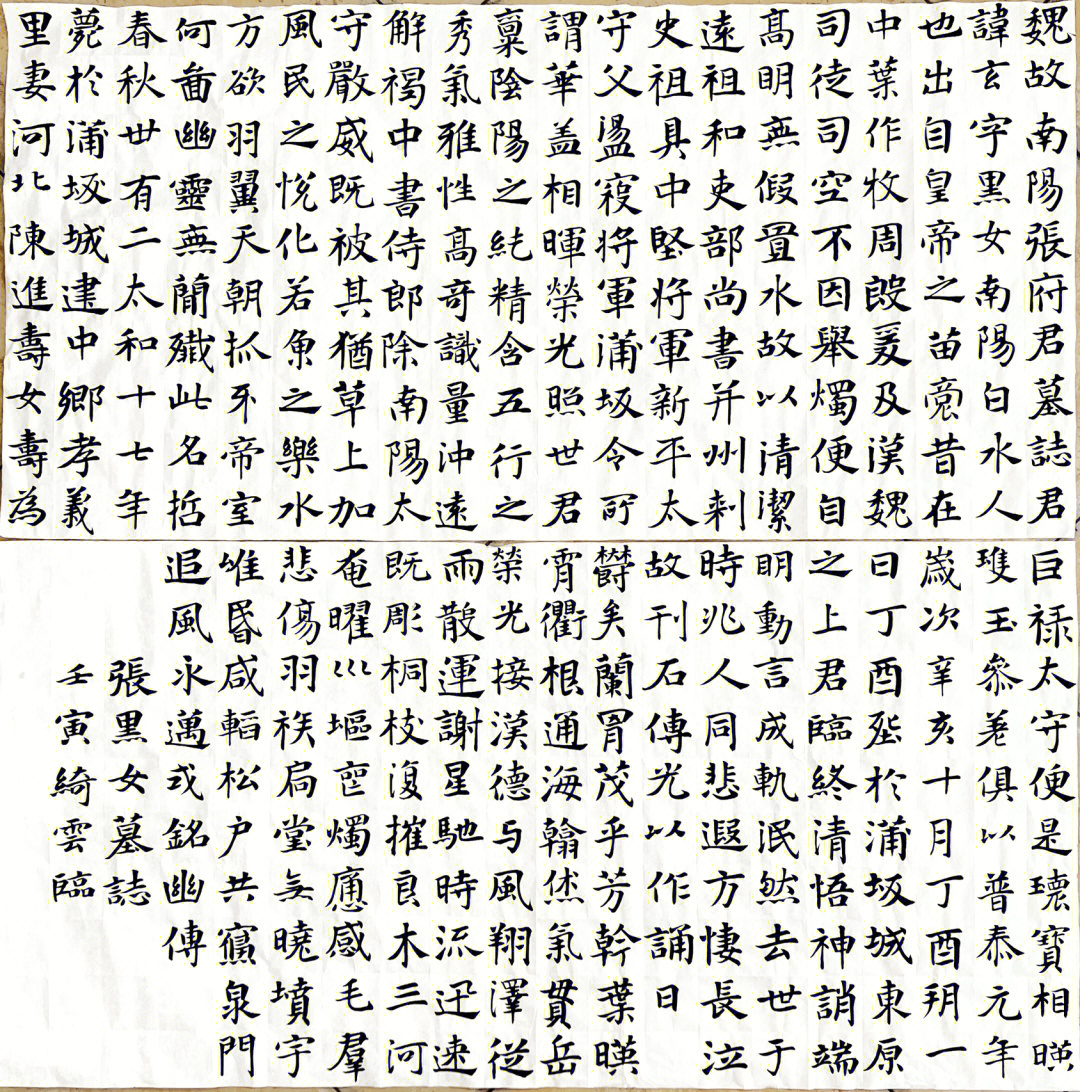 魏故南陽張府君墓誌
諱玄字黑女南陽白水人
也出自皇帝之苗裔昔在
中葉作牧周殷爰及漢魏
司徒司空不因舉燭便自
高明無假置水故以清潔
遠祖和吏部尚書并州刺
史祖具中堅將軍新平太
守父盪寇將軍蒲坂令所
謂華蓋相暉榮光照世君
稟陰陽之純精含五行之
秀氣雅性高奇識量沖遠
解褐中書侍郎除南陽太
守嚴威既被其猶草上加
風民之悅化若魚之樂水
方欲羽翼天朝抓牙帝室
何啚幽靈無簡殲此名哲
春秋卅有二太和十七年
薨於蒲坂城建中鄉孝義
里妻河北陳進壽女壽為
巨祿太守便是瓌寶相暎
瓊玉參差俱以普泰元年
歲次辛亥十月丁酉朔一
日丁酉葬於蒲坂城東原
之上君臨終清悟神誚端
明動言成軌泯然去世于
時兆人同悲遐方悽長泣
故刊石傳光以作誦曰
欝矣蘭胃茂乎芳幹葉暎
霄衢根通海翰烋氣貫岳
榮光接漢德与風翔澤從
雨散運謝星馳時流迅速
既彫桐枝復摧良木三河
奄曜巛塸窋燭應感毛羣
悲傷羽族扃堂無曉墳宇
唯昏咸輼松户共寳泉門
追風永邁式銘幽傳
張黑女墓誌
壬寅綺雲臨